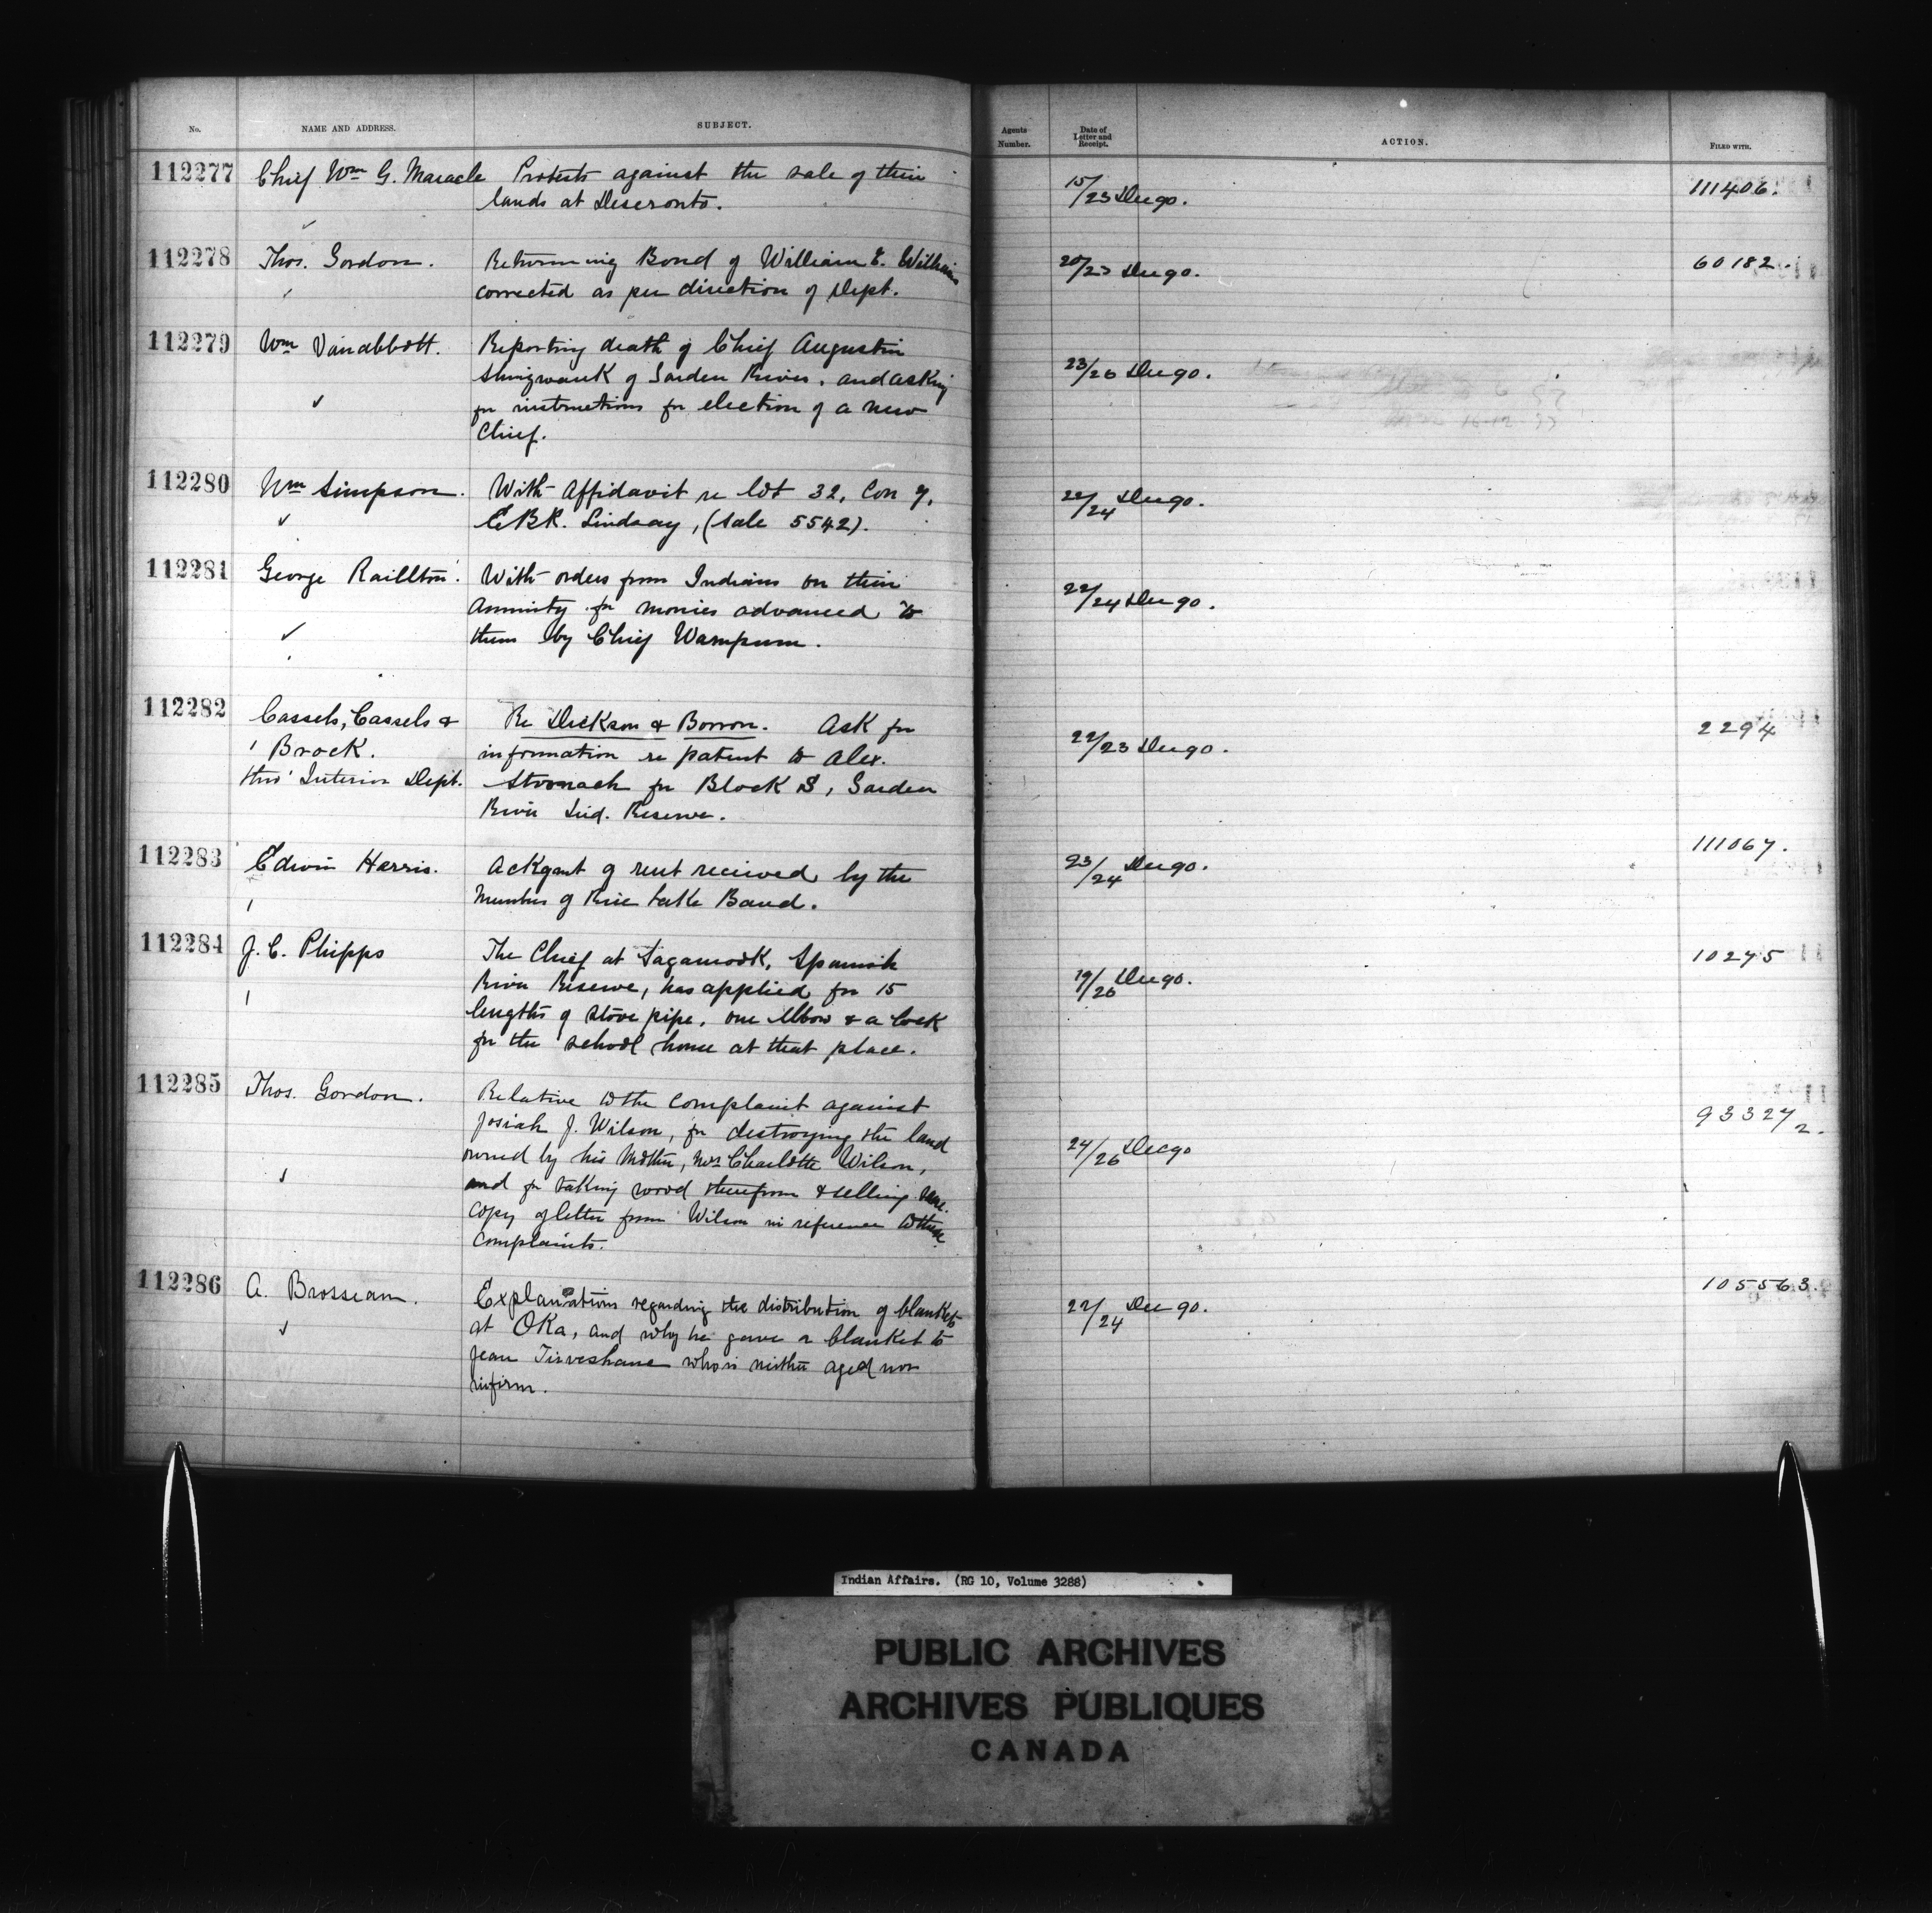 No.
NAME AND ADDRESS.
SUBJECT.
Agents
Number.
Date of
Letter and
Receipt.
ACTION.
FILED WITH.
112277
Chief Wm G. Maracle
Protests against the sale of their
lands at Deseronto.
15/23 Dec 90.
111406.
112278
Thos. Gordon.
Returning Bond of William E. Williams
corrected as per direction of Dept.
20/23 Dec 90.
60182.
112279
Wm Vanabbott.
Reporting death of Chief Augustin
Shingwauk of Garden River, and asking
for instructions for election of a new
Chief.
23/26 Dec 90.
112280
Wm Simpson.
With Affidavit re lot 32, Con 7,
E.B.R. Lindsay, (Sale 5542).
22/24 Dec 90.
112281
George Raillton.
With orders from Indians on their
Annuity for monies advanced to
them by Chief Wampum.
22/24 Dec 90.
112282
Cassels, Cassels &
Brock.
thro' Interior Dept.
Re Dickson & Borron. Ask for
information re patent to Alex.
Stronach for Block B, Garden
River Ind. Reserve.
22/23 Dec 90.
2294
112283
Edwin Harris.
Ackgmt of rent received by the
Members of Rice Lake Band.
23/24 Dec 90.
111067.
112284
J. C. Phipps
The Chief at Sagamook, Spanish
River Reserve, has applied for 15
lengths of stove pipe, one elbow & a lock
for the school house at that place.
19/26 Dec 90.
10275
112285
Thos. Gordon.
Relative to the complaint against
Josiah J. Wilson, for destroying the land
owned by his Mother, Mrs Charlotte Wilson,
and for taking wood therefrom & selling same.
Copy of letter from Wilson in reference to these
complaints.
24/26 Dec 90
93327
2.
112286
A. Brosseau.
Explanations regarding the distribution of blankets
at Oka, and why he gave a blanket to
Jean Tirveshane who is neither aged nor
infirm.
22/24 Dec 90.
105563.
Indian Affairs. (RG 10, Volume 3288)
PUBLIC ARCHIVES
ARCHIVES PUBLIQUES
CANADA